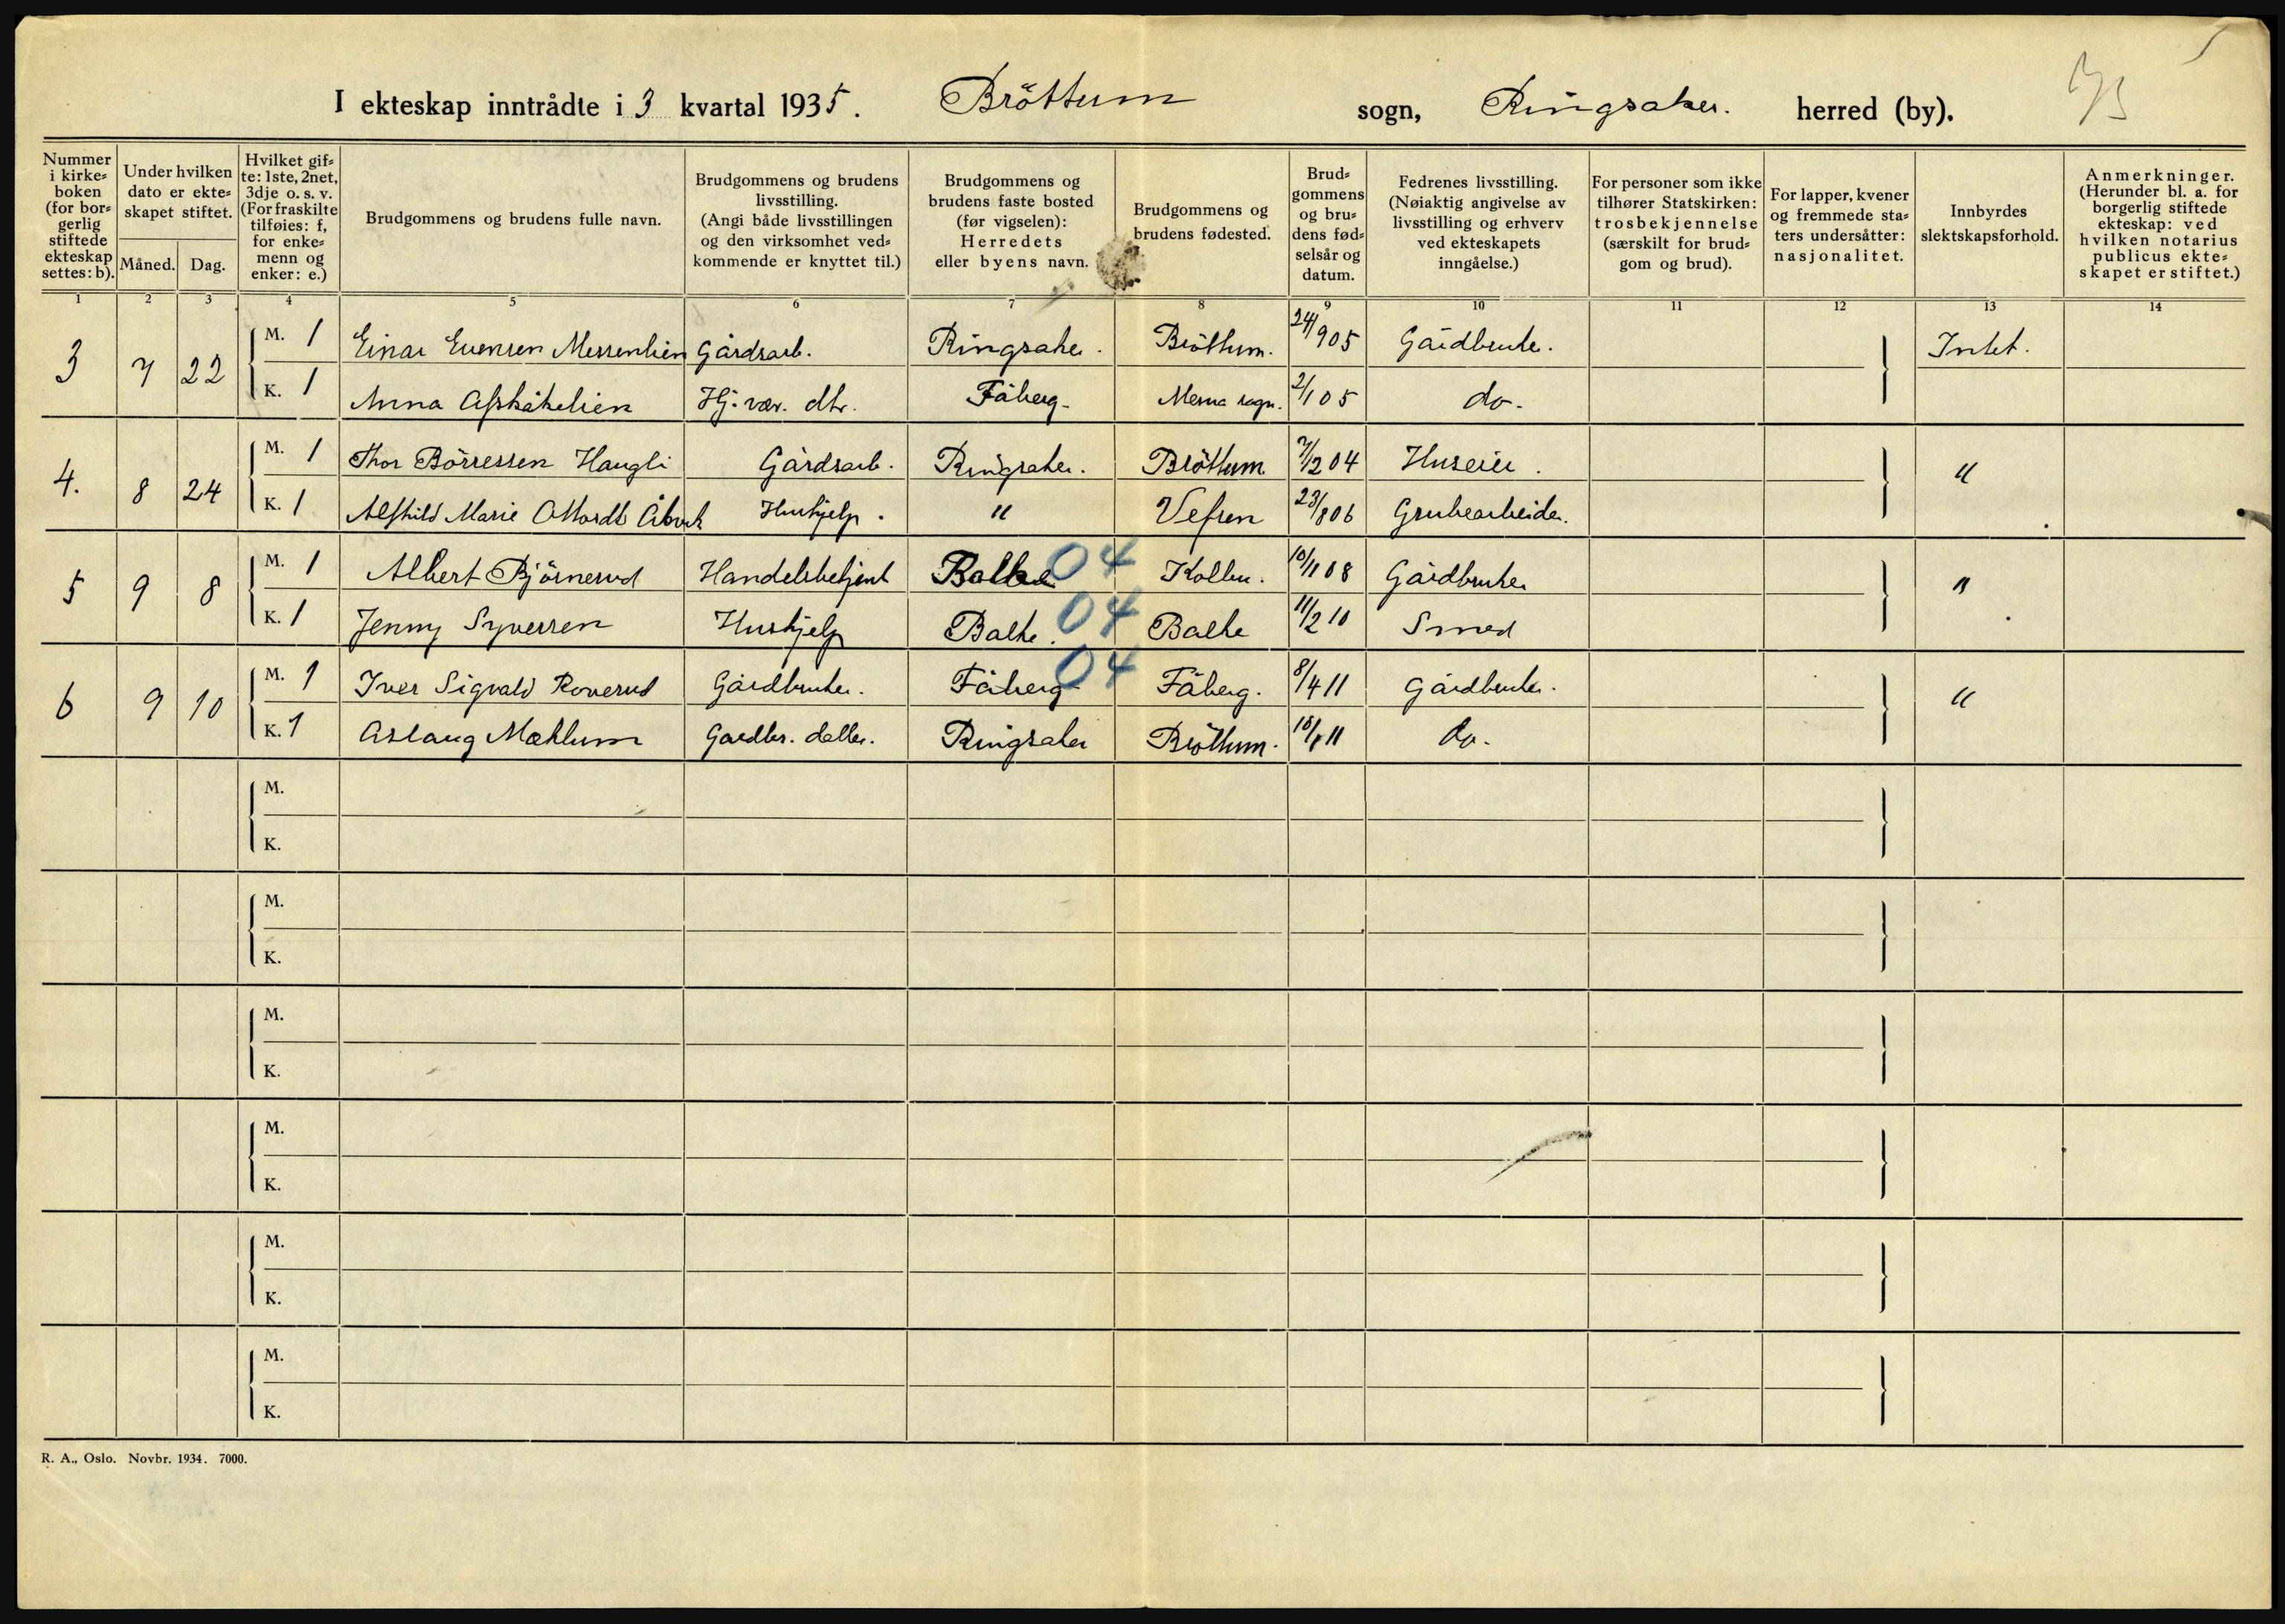 I ekteskap inntrådte i 3 kvartal 1935. Bröttum sogn, Ringsaker. herred (by).
Nummer i kirke= boken (for bor= gerlig stiftede ekteskap settes: b).
Under hvilken dato er ekte= skapet stiftet.
Måned. Dag.
Hvilket gif= te: 1ste, 2net, 3dje o. s. v. (For fraskilte tilføies: f, for enke= menn og enker: e.)
Brudgommens og brudens fulle navn.
Brudgommens og brudens livsstilling. (Angi både livsstillingen og den virksomhet ved= kommende er knyttet til.)
Brudgommens og brudens faste bosted (før vigselen): Herredets eller byens navn.
Brudgommens og brudens fødested.
Brud= gommens og bru= dens fød= selsår og datum.
Fedrenes livsstilling. (Nøiaktig angivelse av livsstilling og erhverv ved ekteskapets inngåelse.)
For personer som ikke tilhører Statskirken: trosbekjennelse (særskilt for brud= gom og brud).
For lapper, kvener og fremmede sta= ters undersåtter: nasjonalitet.
Innbyrdes slektskapsforhold.
Anmerkninger. (Herunder bl. a. for borgerlig stiftede ekteskap: ved hvilken notarius publicus ekte= skapet er stiftet.)
1 2 3 4 5 6 7 8 9 10 11 12 13 14
3 7 22 M. 1 Einar Evensen Messenlien Gårdsarb. Ringsaker. Bröttum. 24/9 05 Gårdbruker. Intet.
K. 1 Anna Afskåkelien Hj. vær. dtr. Fåberg. Mesna sogn. 2/1 05 do.
4. 8 24 M. 1 Thor Börressen Haugli Gårdsarb. Ringsaker. Bröttum 7/2 04 Huseier. "
K. 1 Alfhild Marie Hushjelp. " Vefsen 23/8 06 Grubearbeider.
5 9 8 M. 1 Albert Björnerud Handelsbetjent Balke 04 Kolbu. 10/11 08 Gårdbruker "
K. 1 Jenny Syversen Hushjelp Balke. 04 Balke 11/2 10 Smed
6 9 10 M. 1 Iver Sigvald Roverud Gårdbruker. Fåberg 04 Fåberg. 8/4 11 Gårdbruker. "
K. 1 Aslaug Mæhlum Gardbr. datter. Ringsaker Bröttum. 11 do.
M.
K.
M.
K.
M.
K.
M.
K.
M.
K.
M.
K.
R. A., Oslo. Novbr. 1934. 7000.